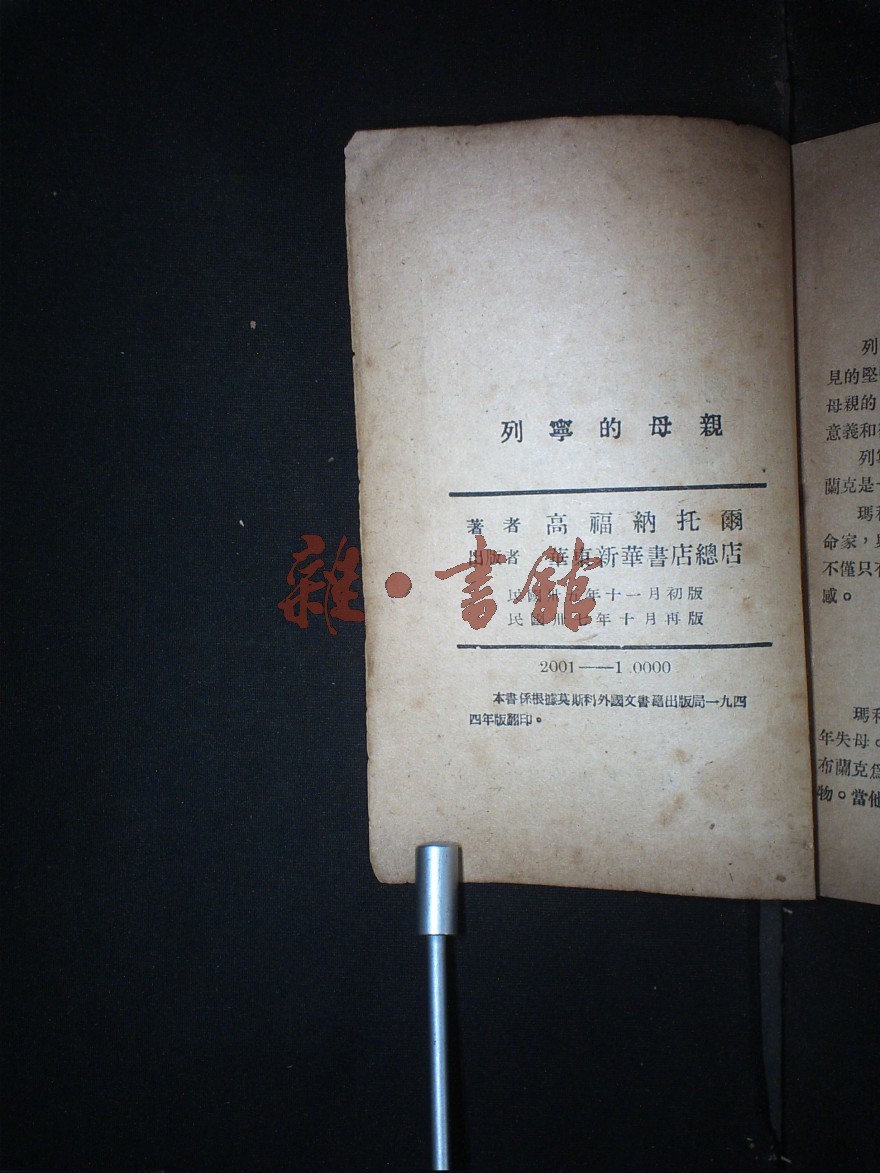 列寧的母親
著者 高福納托爾
出版者 華東新華書店總店
民國卅五年十一月初版
民國卅七年十月再版
2001——1.0000
本書係根據莫斯科外國文書籍出版局一九四
四年版翻印。
雜·書館
列
見的堅
母親的
意義和
列寧
蘭克是
瑪利
命家,
不僅只有
感。
瑪利
年失母。
布蘭克為
物。當他